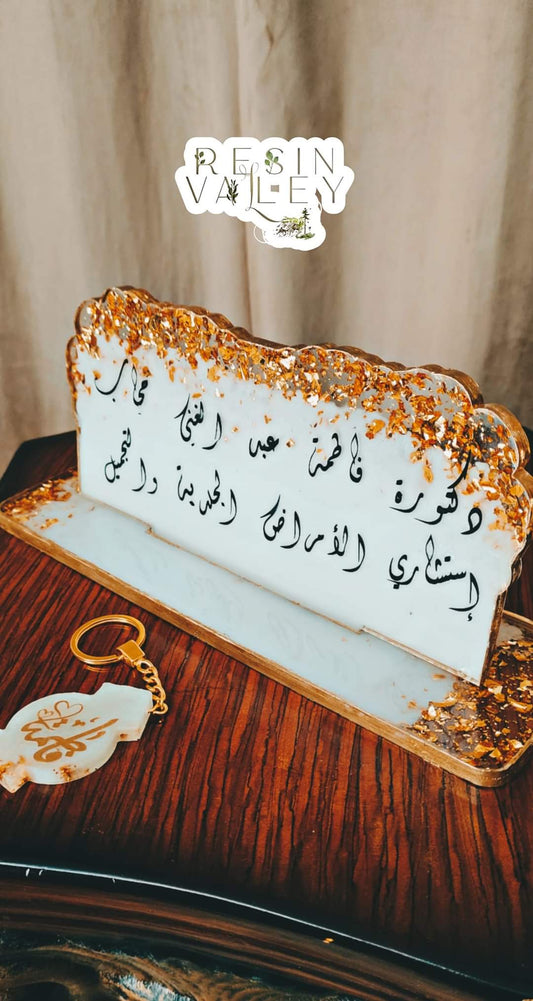 RESIN
VALLEY
دكتورة فاطمة عبد الغني
إستشاري الأمراض الجلدية والتجميل
فاطمة